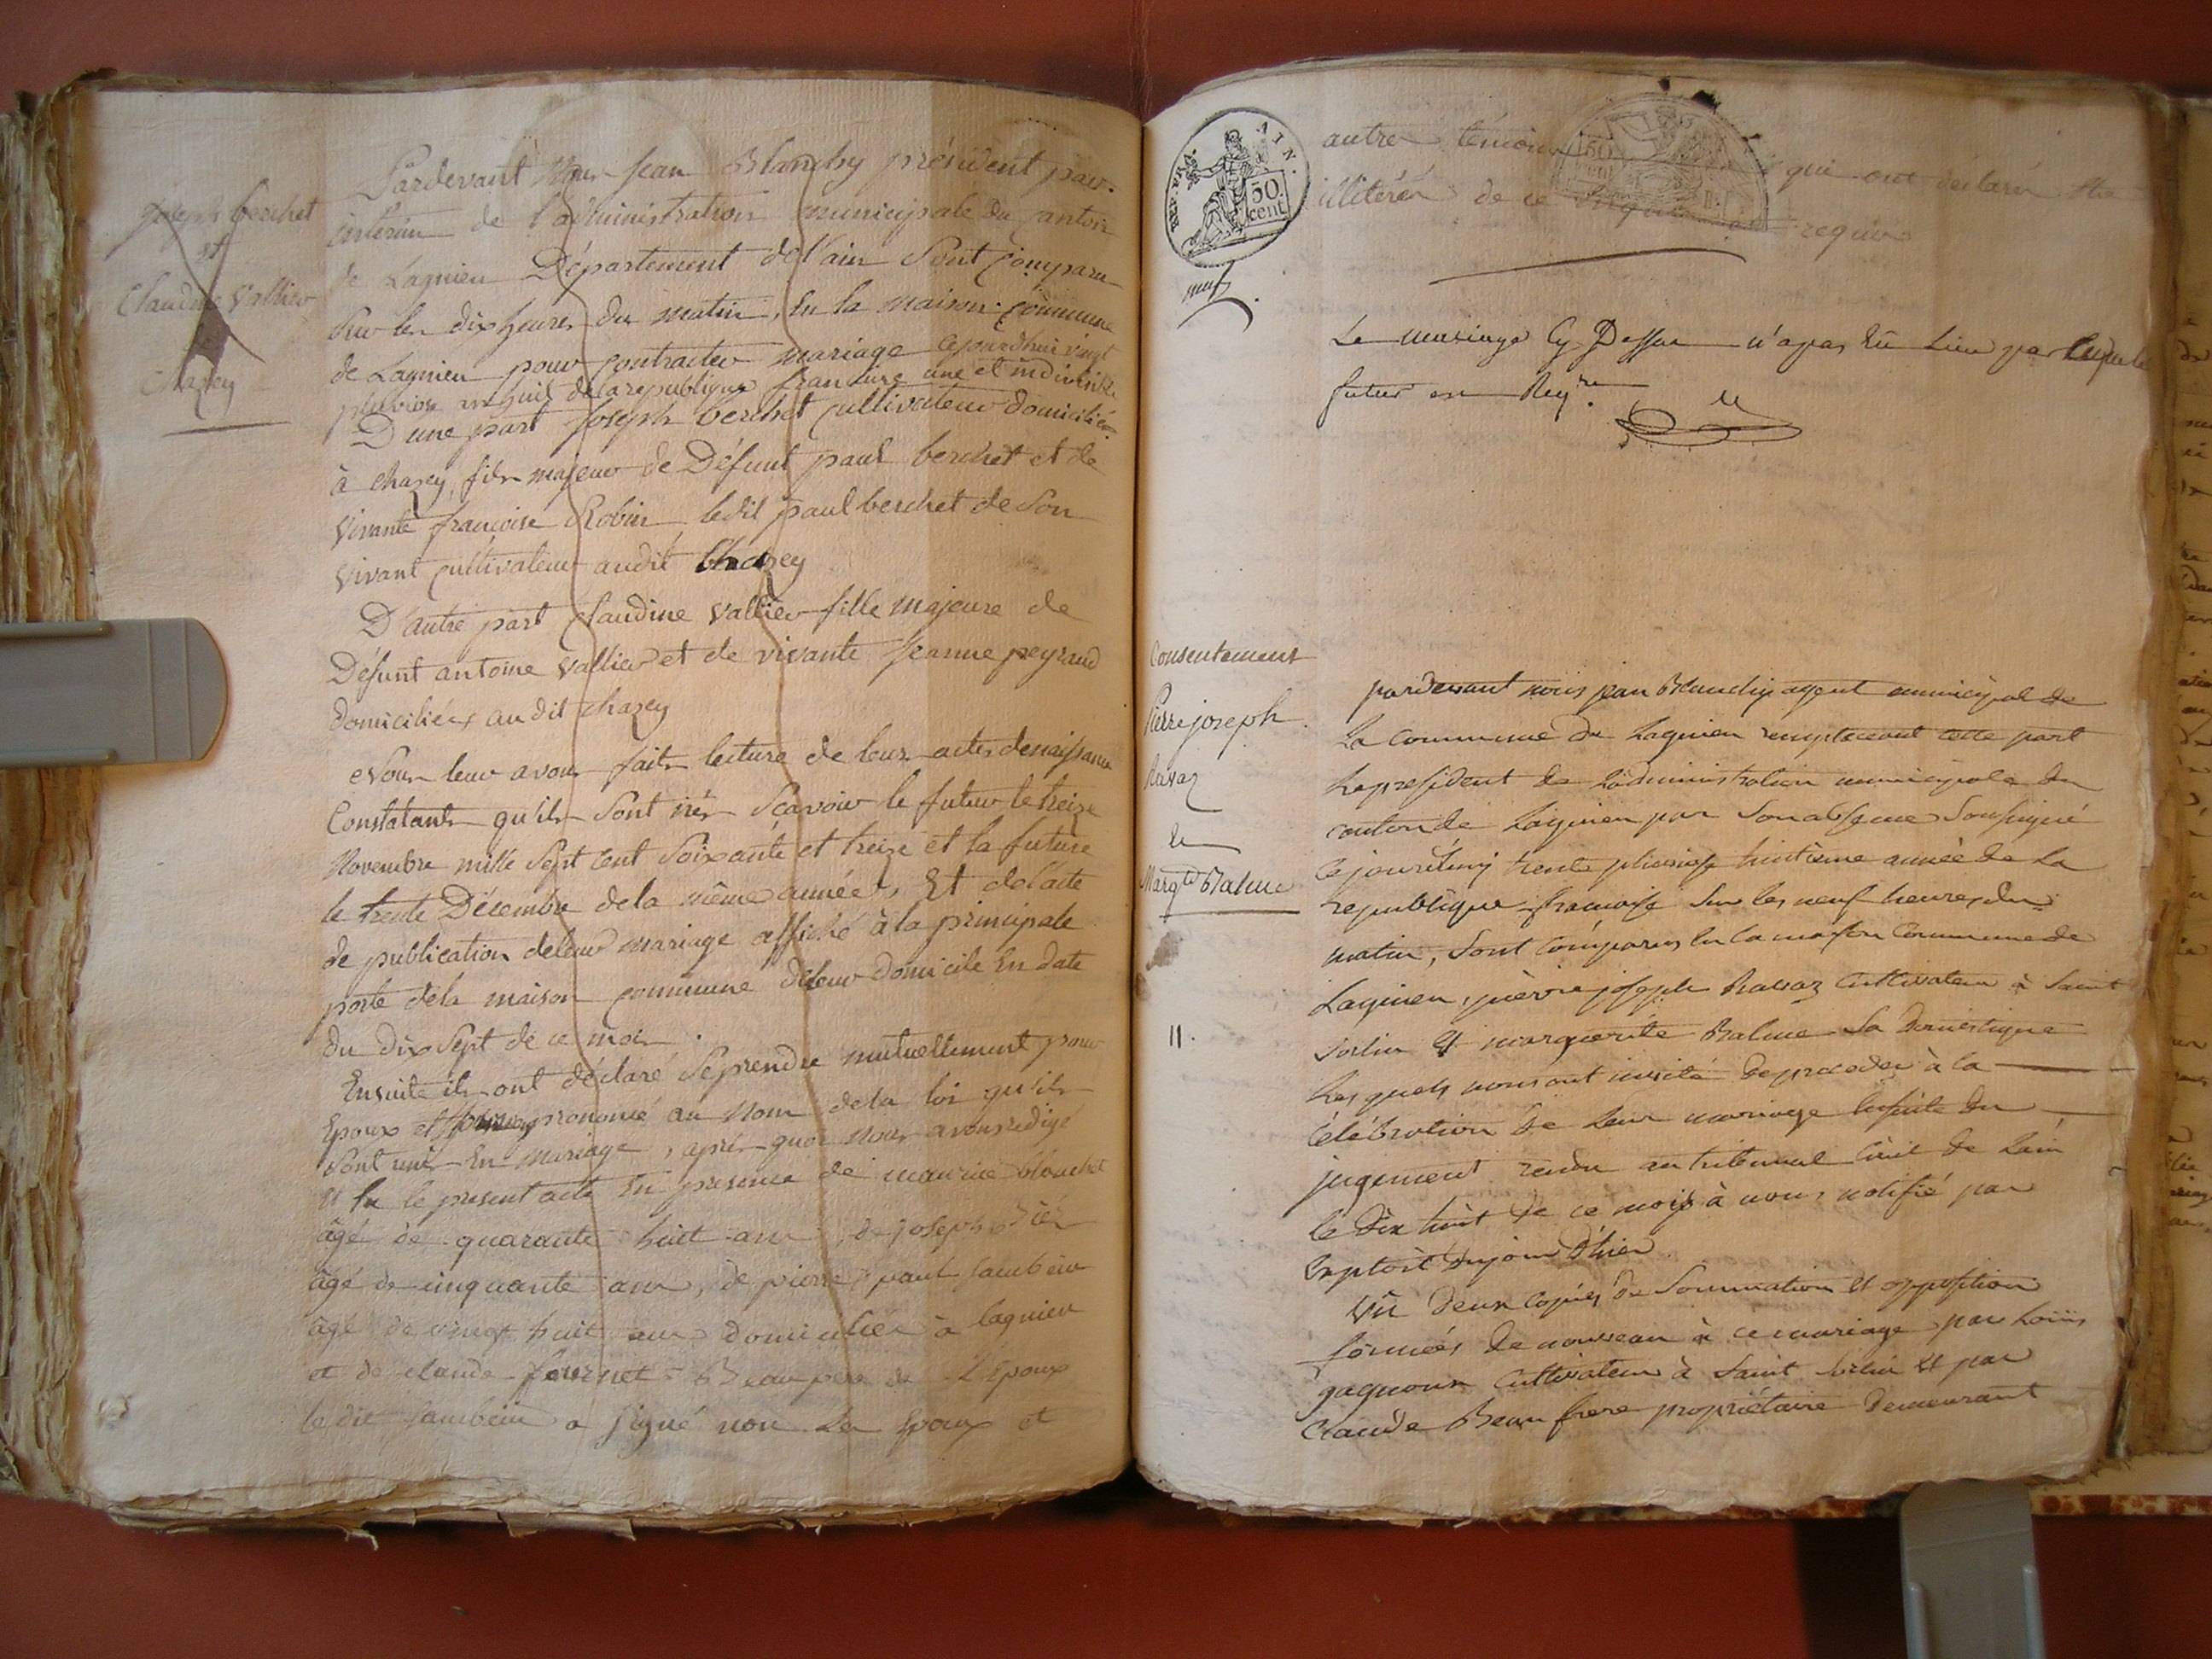 joseph berchet
et
Claudine Vallier
Chazey
Pardevant Nous Jean Blanchy président par
interim de l'administration municipale du canton
de Lagnieu Département de l'ain Sont Comparu
Sur les dix heures du matin, En la maison commune
de Lagnieu pour contracter mariage cejourd'hui vingt
pluviose an huit de la republique francaise une et indivisible
D'une part joseph berchet cultivateur domicilié
à chazey, fils majeur de Défunt paul berchet et de
Vivante françoise Robin ledit paul berchet de Son
Vivant cultivateur audit Chazey
D'autre part Claudine Vallier fille majeure de
Défunt antoine Vallier et de vivante Jeanne peyraud
domiciliés audit chazey
Nous leur avons fait lecture de leurs actes de naissance
Constatants qu'ils Sont nés Scavoir le futur le treize
Novembre mille Sept Cent Soixante et treize et la future
le trente Décembre de la même année, Et de l'acte
de publication de leur mariage affiché à la principale
porte de la maison commune de leur domicile En date
du dix Sept de ce mois.
Ensuite ils ont déclaré Se prendre mutuellement pour
Epoux et prononcé au Nom de la loi qu'ils
Sont unis En mariage, après quoi Nous avons redigé
et lu le present acte En presence de maurice blanchet
âgé de quarante huit ans, de joseph
âgé de cinquante ans, de pierre paul Jambein
âgé de vingt huit ans domiciliés à lagnieu
et de claude fournet Beaupere de l'Epoux
le dit Jambein a signé non les Epoux et
AIN.
50
cent
autres témoins qui ont declaré être
illitérés de ce requis
Le mariage Cy Dessus n'a pas Eû Lieu par
futur en Req.re
Consentement
Pierre joseph
Ravaz
et
Marg.te Balme
11.
pardevant nous jean Blanchy agent municipal de
La Commune de Lagnieu remplacant cette part
Le president de L'administration municipale du
canton de Lagnieu par Son absence Soussigné
Ce jourd'huy trente pluviose huitieme année de La
republique francaise Sur les neuf heures du
matin, Sont Comparus En la maison Commune de
Lagnieu, pierre joseph Ravaz Cultivateur à Saint
Sorlin Et marguerite Balme Sa Domestique
Lesquels nous ont invité De proceder à la
Célébration De Leur mariage Ensuite Du
jugement rendu au tribunal Civil de Lain
le Dix huit De ce mois à nous notifié par
Exploit Du jour D'hier
Vû Deux Copies De Sommation Et opposition
formées De nouveau à ce mariage par Loüis
gagnoux Cultivateur à Saint Sorlin Et par
Claude Beau frere propriétaire Demeurant